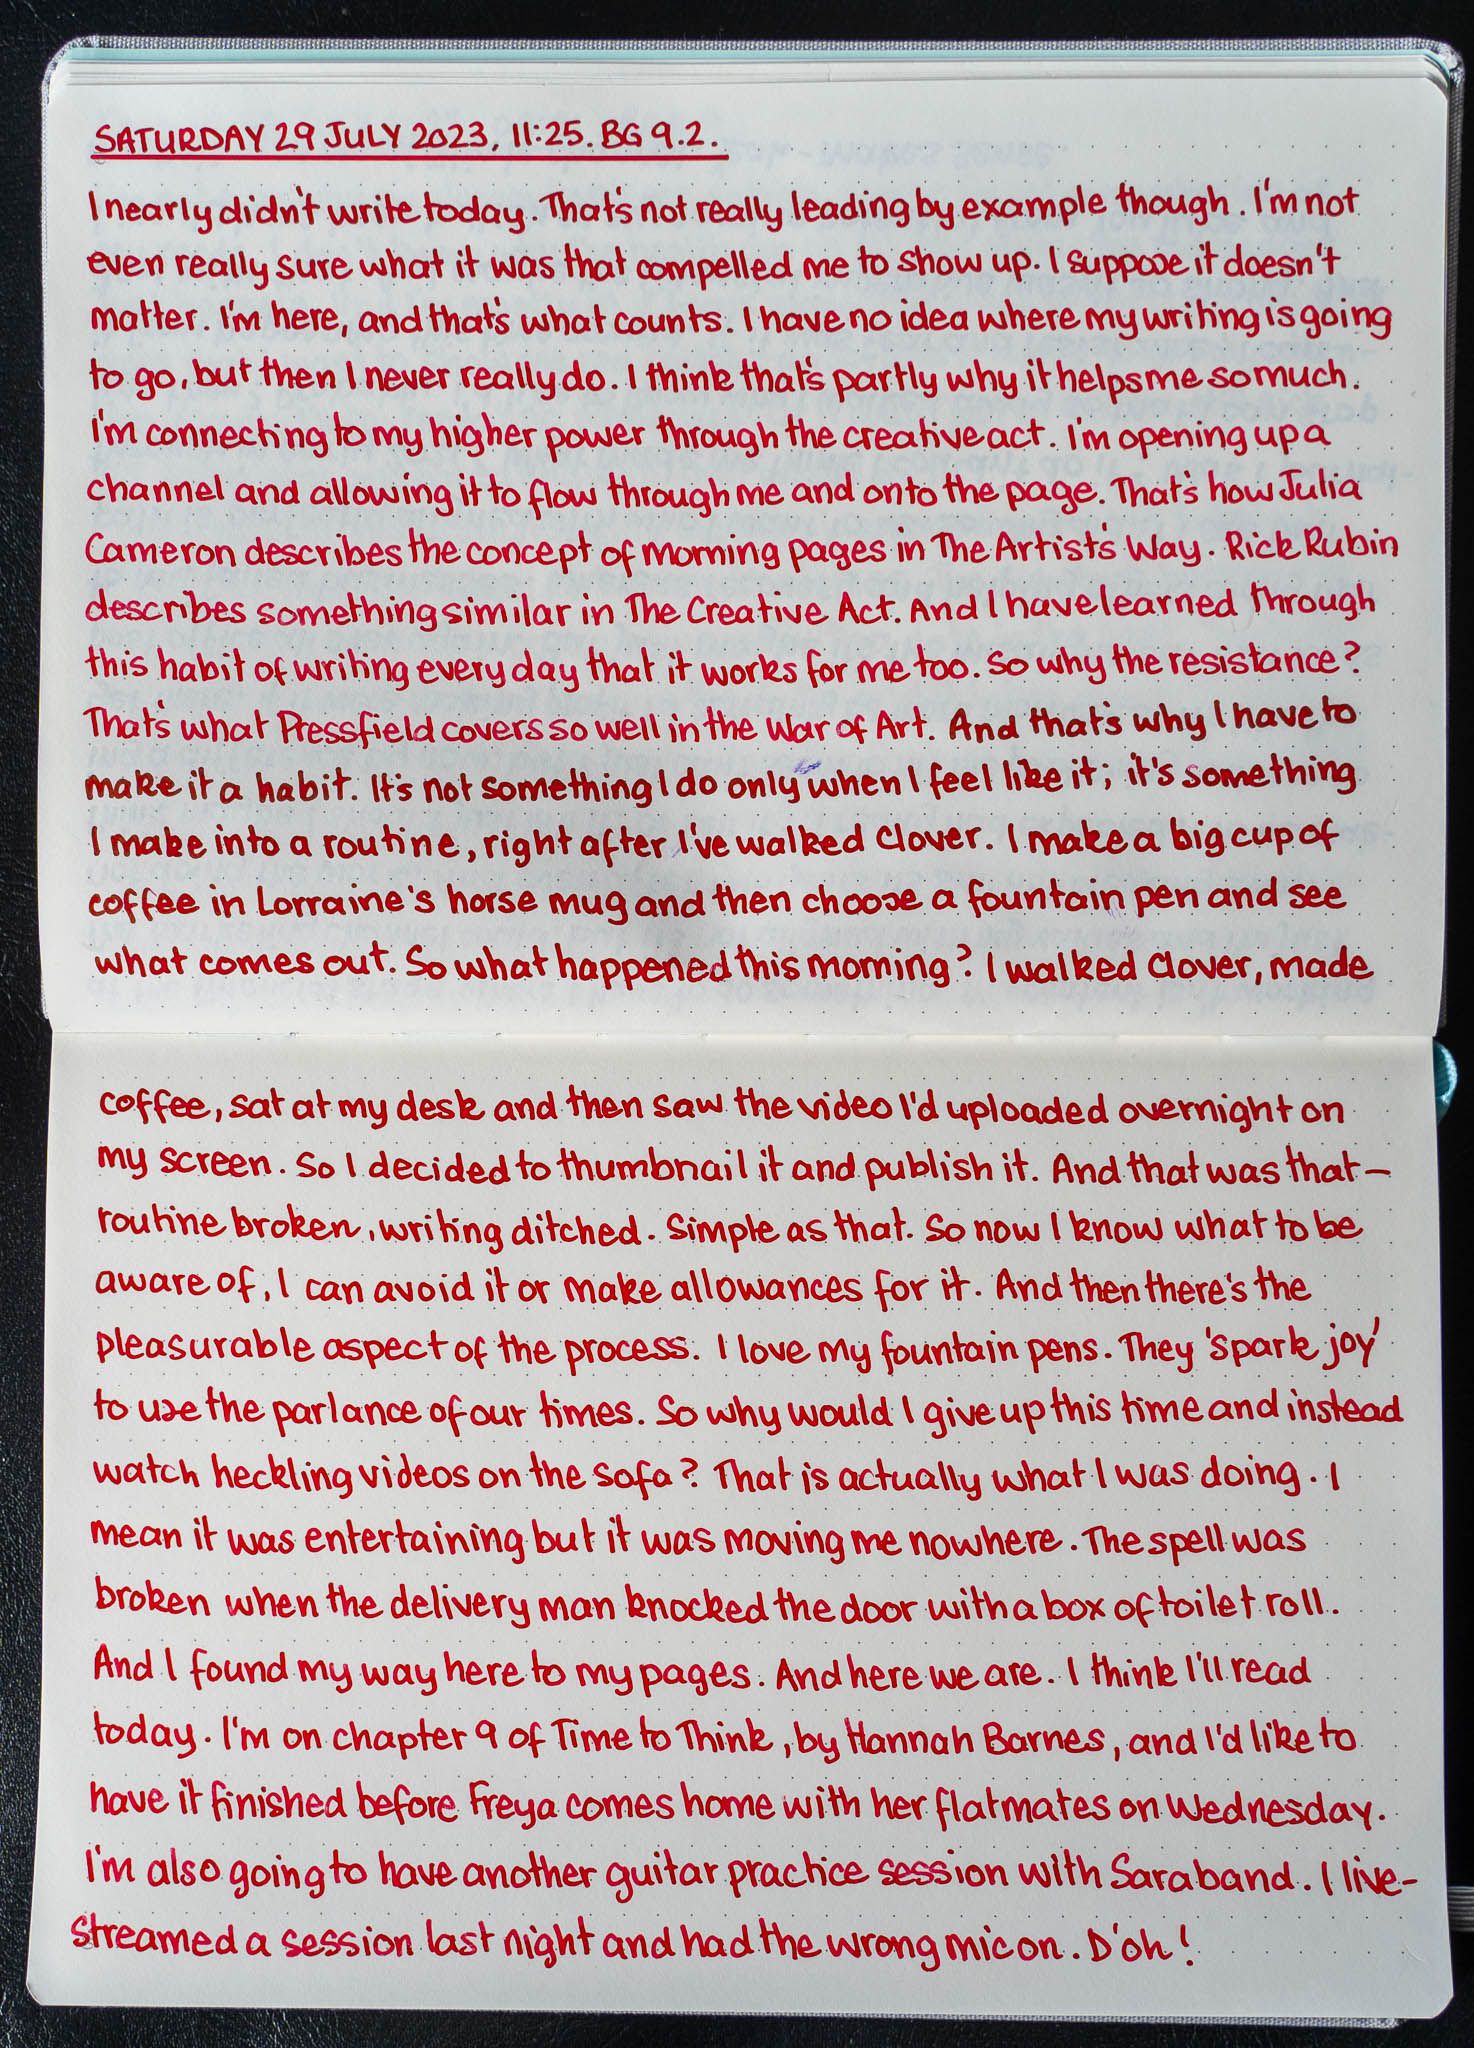 SATURDAY 29 JULY 2023, 11:25. BG 9.2.
I nearly didn't write today. That's not really leading by example though. I'm not
even really sure what it was that compelled me to show up. I suppose it doesn't
matter. I'm here, and that's what counts. I have no idea where my writing is going
to go, but then I never really do. I think that's partly why it helps me so much.
I'm connecting to my higher power through the creative act. I'm opening up a
channel and allowing it to flow through me and onto the page. That's how Julia
Cameron describes the concept of morning pages in The Artist's Way. Rick Rubin
describes something similar in The Creative Act. And I have learned through
this habit of writing every day that it works for me too. So why the resistance?
That's what Pressfield covers so well in the War of Art. And that's why I have to
make it a habit. It's not something I do only when I feel like it; it's something
I make into a routine, right after I've walked Clover. I make a big cup of
coffee in Lorraine's horse mug and then choose a fountain pen and see
what comes out. So what happened this morning? I walked Clover, made
coffee, sat at my desk and then saw the video I'd uploaded overnight on
my screen. So I decided to thumbnail it and publish it. And that was that –
routine broken, writing ditched. Simple as that. So now I know what to be
aware of, I can avoid it or make allowances for it. And then there's the
pleasurable aspect of the process. I love my fountain pens. They 'spark joy'
to use the parlance of our times. So why would I give up this time and instead
watch heckling videos on the sofa? That is actually what I was doing. I
mean it was entertaining but it was moving me nowhere. The spell was
broken when the delivery man knocked the door with a box of toilet roll.
And I found my way here to my pages. And here we are. I think I'll read
today. I'm on chapter 9 of Time to Think, by Hannah Barnes, and I'd like to
have it finished before Freya comes home with her flatmates on Wednesday.
I'm also going to have another guitar practice session with Saraband. I live-
streamed a session last night and had the wrong mic on. D'oh!